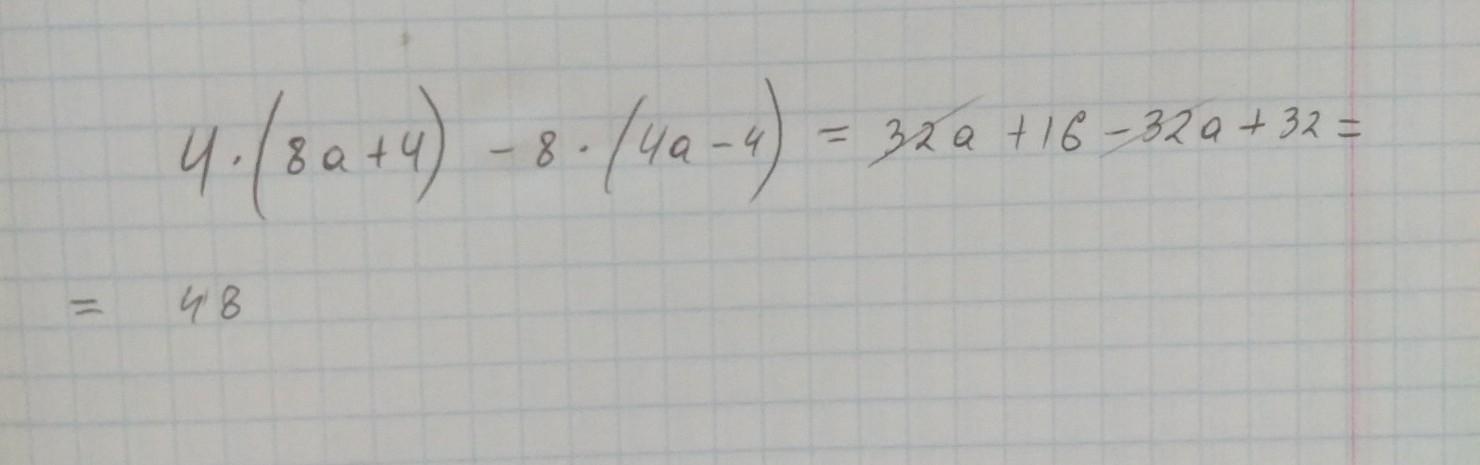 4·(8a+4) - 8·(4a-4) = 32a + 16 - 32a + 32 =
= 48